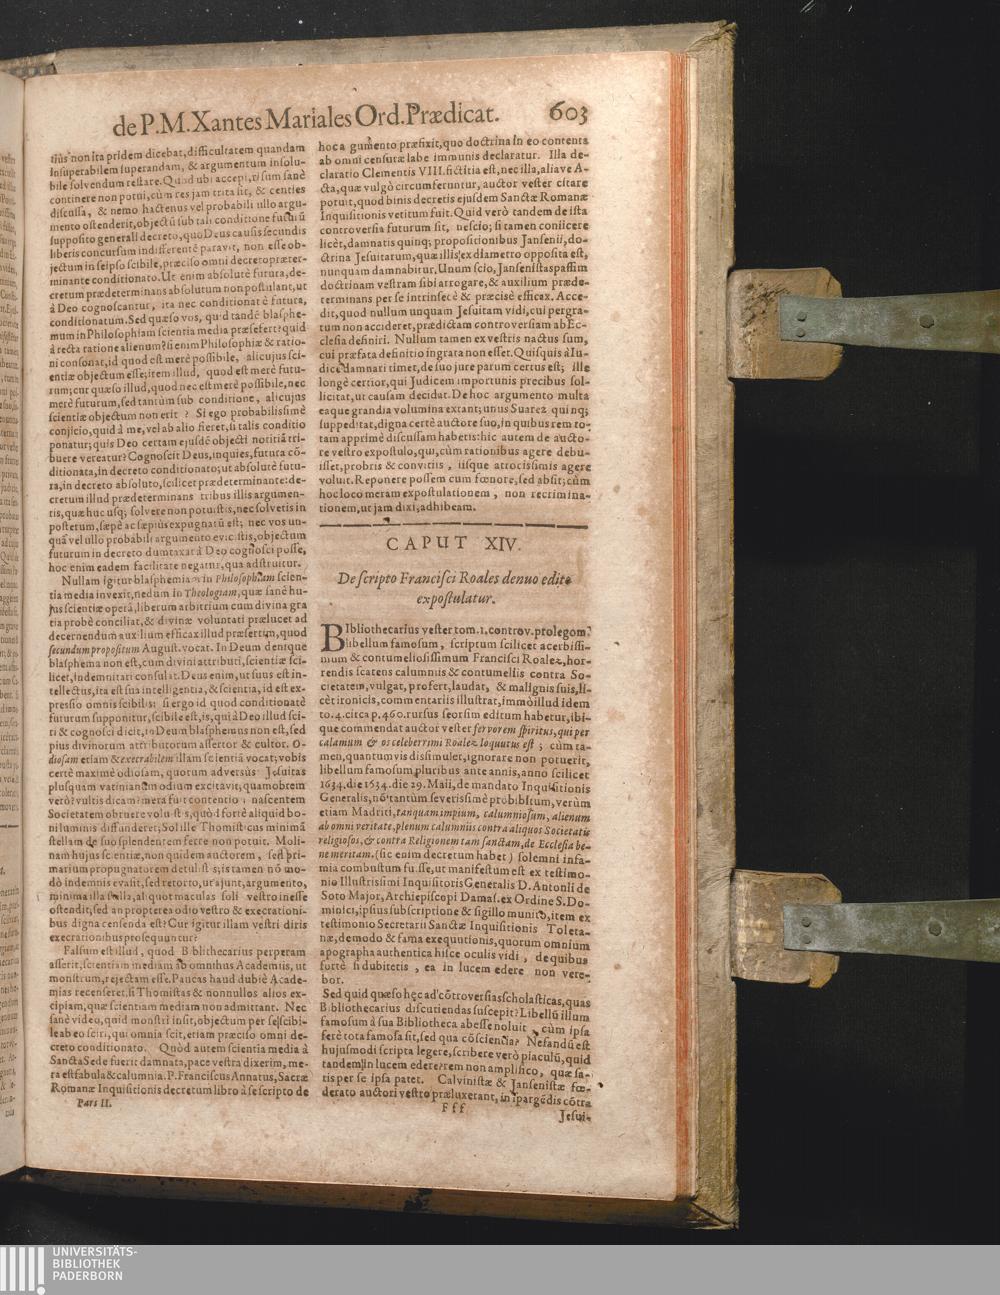 de P.M.Xantes Mariales Ord.Prædicat. 603
tius non ita pridem dicebat, difficultatem quandam
insuperabilem superandam, & argumentum insolu-
bile solvendum restare. Quod ubi accepi, risum sanè
continere non potui, cùm res jam trita sit, & centies
discussa, & nemo hactenus vel probabili ullo argu-
mento ostenderit, objectū sub tali conditione futurū
supposito generali decreto, quo Deus causis secundis
liberis concursum indifferentē paravit, non esse ob-
jectum in seipso scibile, præciso omni decreto præter-
minante conditionato. Ut enim absolutè futura, de-
cretum prædeterminans absolutum non postulant, ut
à Deo cognoscantur, ita nec conditionatè futura,
conditionatum. Sed quæso vos, quid tandē blasphe-
mum in Philosophiam scientia media præsefert? quid
à recta ratione alienum? si enim Philosophiæ & ratio-
ni consonat, id quod est merè possibile, alicujus sci-
entiæ objectum esse; item illud, quod est merè futu-
rum; cur quæso illud, quod nec est merè possibile, nec
merè futurum, sed tantùm sub conditione, alicujus
scientiæ objectum non erit? Si ego probabilissimè
conjicio, quid à me, vel ab alio fieret, si talis conditio
ponatur; quis Deo certam ejusdē objecti notitiā tri-
buere vereatur? Cognoscit Deus, inquies, futura cō-
ditionata, in decreto conditionato; ut absolutè futu-
ra, in decreto absoluto, scilicet prædeterminante: de-
cretum illud prædeterminans tribus illis argumen-
tis, quæ huc usq; solvere non potuistis, nec solvetis in
posterum, sæpè ac sæpiùs expugnatū est; nec vos un-
quā vel ullo probabili argumento evicistis, objectum
futurum in decreto dumtaxat à Deo cognosci posse,
hoc enim eadem facilitate negatur, qua adstruitur.
Nullam igitur blasphemiam in Philosophiam scien-
tia media invexit, nedum in Theologiam, quæ sanè hu-
jus scientiæ operâ, liberum arbitrium cum divina gra
tia probè conciliat, & divinæ voluntati prælucet ad
decernendum auxilium efficax illud præsertim, quod
secundum propositum August. vocat. In Deum denique
blasphema non est, cum divini attributi, scientiæ sci-
licet, indemnitati consulat. Deus enim, ut suus est in-
tellectus, ita est sua intelligentia, & scientia, id est ex-
pressio omnis scibilis: si ergo id quod conditionatè
futurum supponitur, scibile est, is, qui à Deo illud sci-
ri & cognosci dicit, in Deum blasphemus non est, sed
pius divinorum attributorum assertor & cultor. O-
diosam etiam & execrabilem illam scientiā vocat; vobis
certè maximè odiosam, quorum adversùs Jesuitas
plusquam vatinianum odium excitavit, quamobrem
verò? vultis dicam? mera fuit contentio, nascentem
Societatem obruere voluistis, quòd fortè aliquid bo-
ni luminis diffunderet; Sol ille Thomisticus minimā
stellam de suo splendentem ferre non potuit. Moli-
nam hujus scientiæ, non quidem auctorem, sed pri-
marium propugnatorem detulistis; is tamen nō mo-
dò indemnis evasit, sed retorto, ut ajunt, argumento,
minima illa stella, aliquot maculas soli vestro inesse
ostendit, sed an propterea odio vestro & execrationi-
bus digna censenda est? Cur igitur illam vestri diris
execrationibus prosequuntur?
Falsum est illud, quod Bibliothecarius perperam
asserit, scientiam mediam ab omnibus Academiis, ut
monstrum, rejectam esse. Paucas haud dubiè Acade-
mias recenseret, si Thomistas & nonnullos alios ex-
cipiam, quæ scientiam mediam non admittant. Nec
sanè video, quid monstri insit, objectum per se scibi-
le ab eo sciri, qui omnia scit, etiam præciso omni de-
creto conditionato. Quòd autem scientia media à
Sancta Sede fuerit damnata, pace vestra dixerim, me-
ra est fabula & calumnia. P. Franciscus Annatus, Sacræ
Romanæ Inquisitionis decretum libro à se scripto de
Pars II.
hoc argumento præfixit, quo doctrina in eo contenta
ab omni censuræ labe immunis declaratur. Illa de-
claratio Clementis VIII. fictitia est, nec illa, aliave A-
cta, quæ vulgò circumferuntur, auctor vester citare
potuit, quod binis decretis ejusdem Sanctæ Romanæ
Inquisitionis vetitum fuit. Quid verò tandem de ista
controversia futurum sit, nescio; si tamen coniicere
licèt, damnatis quinq; propositionibus Jansenii, do-
ctrina Jesuitarum, quæ illis ex diametro opposita est,
nunquam damnabitur. Unum scio, Jansenistas passim
doctrinam vestram sibi arrogare, & auxilium præde-
terminans per se intrinsecè & præcisè efficax. Acce-
dit, quod nullum unquam Jesuitam vidi, cui pergra-
tum non accideret, prædictam controversiam ab Ec-
clesia definiri. Nullum tamen ex vestris nactus sum,
cui præfata definitio ingrata non esset. Quisquis à Ju-
dice damnari timet, de suo jure parum certus est; ille
longè certior, qui Judicem importunis precibus sol-
licitat, ut causam decidat. De hoc argumento multa
eaque grandia volumina extant; unus Suarez quinq;
suppeditat, digna certè auctore suo, in quibus rem to-
tam apprimè discussam habetis: hic autem de aucto-
re vestro expostulo, qui, cùm rationibus agere debu-
isset, probris & convitiis, iisque atrocissimis agere
voluit. Reponere possem cum fœnore, sed absit; cùm
hoc loco meram expostulationem, non recrimina-
tionem, ut jam dixi, adhibeam.
CAPUT XIV.
De scripto Francisci Roales denuo edito
expostulatur.
BIbliothecarius vester tom. 1. controv. prolegom.
libellum famosum, scriptum scilicet acerbissi-
mum & contumeliosissimum Francisci Roalez, hor-
rendis scatens calumniis & contumeliis contra So-
cietatem, vulgat, profert, laudat, & malignis suis, li-
cèt ironicis, commentariis illustrat, immò illud idem
to. 4. circa p. 460. rursus seorsim editum habetur, ibi-
que commendat auctor vester fervorem spiritus, qui per
calamum & os celeberrimi Roalez loquutus est; cùm ta-
men, quantumvis dissimulet, ignorare non potuerit,
libellum famosum pluribus ante annis, anno scilicet
1634. die 1634. die 29. Maii, de mandato Inquisitionis
Generalis, nō tantùm severissimè prohibitum, verùm
etiam Madriti, tanquam impium, calumniosum, alienum
ab omni veritate, plenum calumniis contra aliquos Societatis
religiosos, & contra Religionem tam sanctam, de Ecclesia be-
ne meritam. (sic enim decretum habet) solemni infa-
mia combustum fuisse, ut manifestum est ex testimo-
nio Illustrissimi Inquisitoris Generalis D. Antonii de
Soto Major, Archiepiscopi Damas. ex Ordine S. Do-
minici, ipsius subscriptione & sigillo munito, item ex
testimonio Secretarii Sanctæ Inquisitionis Toleta-
næ, de modo & fama exequutionis, quorum omnium
apographa authentica hisce oculis vidi, de quibus
fortè si dubitetis, ea in lucem edere non vere-
bor.
Sed quid quæso hęc ad cōtroversias scholasticas, quas
Bibliothecarius discutiendas suscepit? Libellū illum
famosum à sua Bibliotheca abesse noluit, cùm ipsa
ferè tota famosa sit, sed qua cōscientia? Nefandū est
hujusmodi scripta legere, scribere verò piaculū, quid
tandem in lucem edere? rem non amplifico, quæ sa-
tis per se ipsa patet. Calvinistæ & Jansenistæ fœ-
derato auctori vestro præluxerant, in ipargēdis cōtra
Fff
Jesui-
UNIVERSITÄTS-
BIBLIOTHEK
PADERBORN